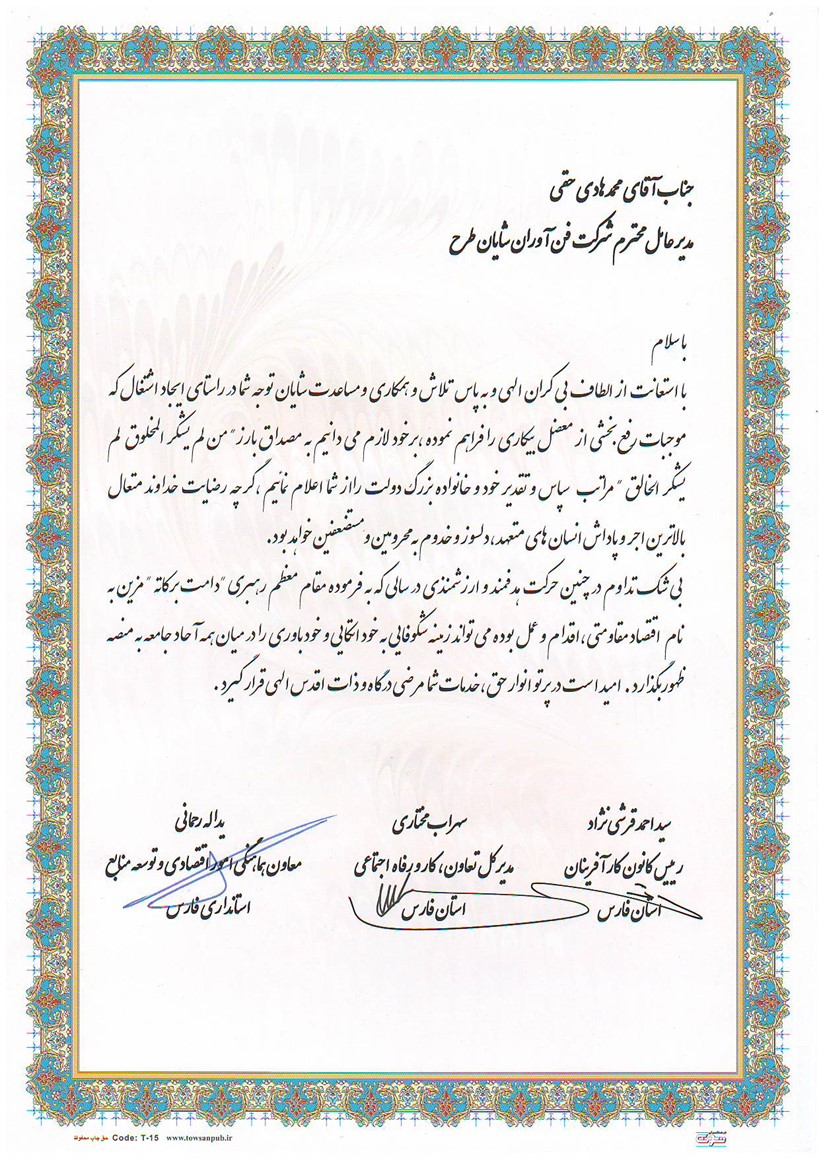 جناب آقای محمد هادی حقی
مدیر عامل محترم شرکت فن آوران شایان طرح
با سلام
با استعانت از الطاف بی کران الهی و به پاس تلاش و همکاری و مساعدت شایان توجه شما در راستای ایجاد اشتغال که
موجبات رفع بخشی از معضل بیکاری را فراهم نموده ، بر خود لازم می دانیم به مصداق بارز " من لم یشکر المخلوق لم
یشکر الخالق " مراتب سپاس و تقدیر خود و خانواده بزرگ دولت را از شما اعلام نمائیم ، گرچه رضایت خداوند متعال
بالاترین اجر و پاداش انسان های متعهد، دلسوز و خدوم به محرومین و مستضعفین خواهد بود.
بی شک تداوم در چنین حرکت هدفمند و ارزشمندی در سالی که به فرموده مقام معظم رهبری "دامت برکاته " مزین به
نام اقتصاد مقاومتی ، اقدام و عمل بوده می تواند زمینه شکوفایی به خود اتکایی و خود باوری را در میان همه آحاد جامعه به منصه
ظهور بگذارد . امید است در پرتو انوار حق ، خدمات شما مرضی درگاه و ذات اقدس الهی قرار گیرد .
سید احمد قرشی نژاد
رییس کانون کارآفرینان
استان فارس
سهراب مختاری
مدیر کل تعاون، کار و رفاه اجتماعی
استان فارس
یداله رحمانی
معاون هماهنگی امور اقتصادی و توسعه منابع
استانداری فارس
حق چاپ محفوظ Code: T-15 www.towsanpub.ir